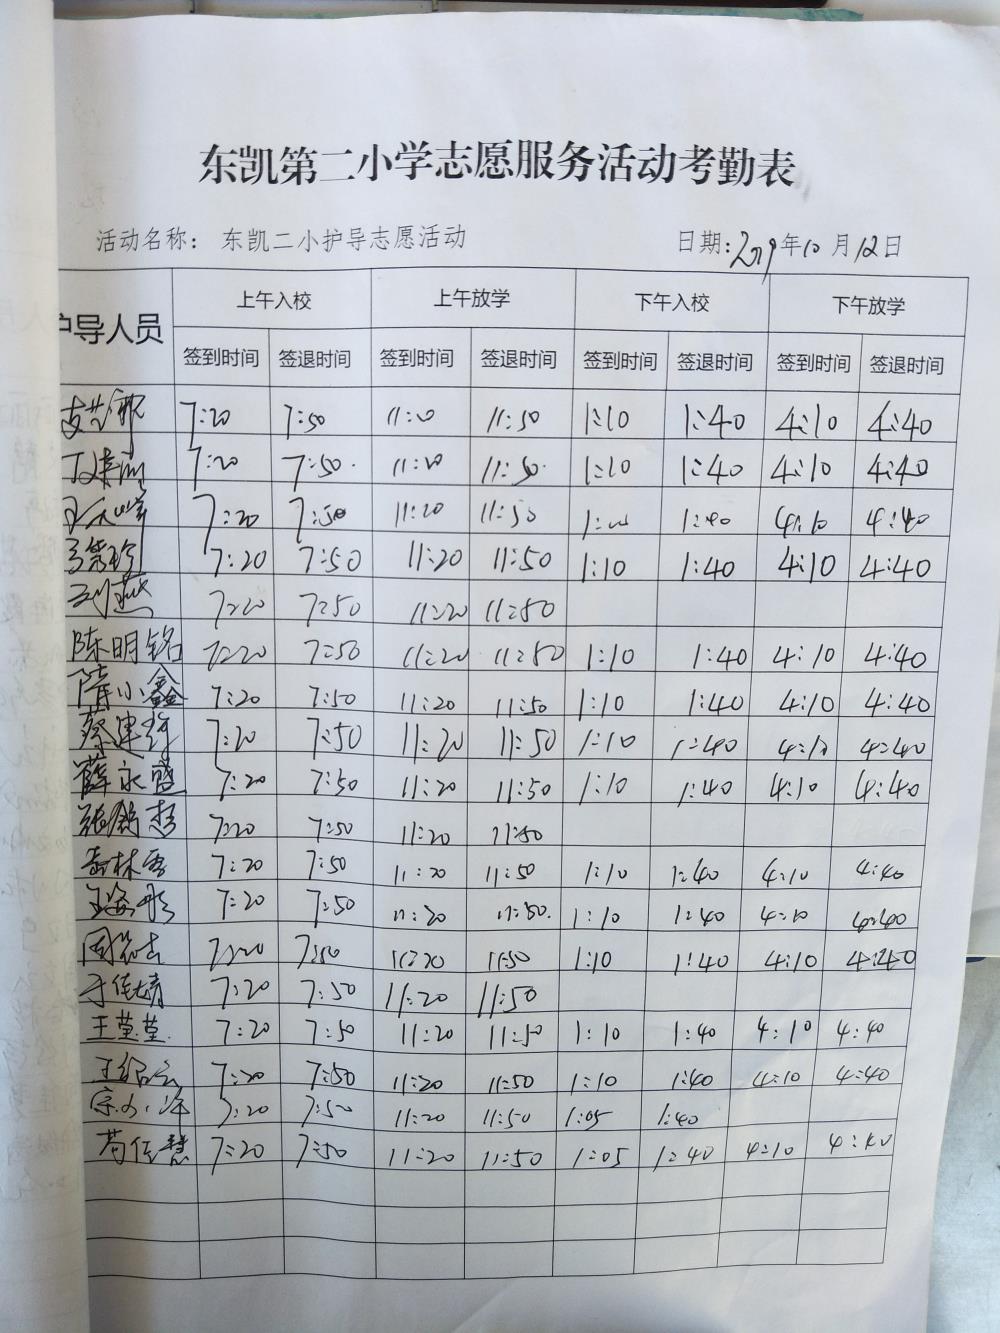 东凯第二小学志愿服务活动考勤表
活动名称: 东凯二小护导志愿活动 日期:2019年10月12日
护导人员 上午入校 上午放学 下午入校 下午放学
签到时间 签退时间 签到时间 签退时间 签到时间 签退时间 签到时间 签退时间
7:20 7:50 11:20 11:50 1:10 1:40 4:10 4:40
7:20 7:50 11:20 11:50 1:10 1:40 4:10 4:40
7:20 7:50 11:20 11:50 1:40 4:10 4:40
7:20 7:50 11:20 11:50 1:10 1:40 4:10 4:40
刘燕 7:20 7:50 11:20 11:50
陈明铭 7:20 7:50 11:20 11:50 1:10 1:40 4:10 4:40
隋小鑫 7:20 7:50 11:20 11:50 1:10 1:40 4:10 4:40
蔡建 7:20 7:50 11:20 11:50 1:10 1:40 4:10 4:40
薛永盛 7:20 7:50 11:20 11:50 1:10 1:40 4:10 4:40
7:20 7:50 11:20 11:50
7:20 7:50 11:20 11:50 1:10 1:40 4:10 4:40
7:20 7:50 11:20 11:50 1:10 1:40 4:10 4:40
7:20 7:50 11:20 11:50 1:10 1:40 4:10 4:40
于佳靖 7:20 7:50 11:20 11:50
王莹莹 7:20 7:50 11:20 11:50 1:10 1:40 4:10 4:40
7:20 7:50 11:20 11:50 1:10 1:40 4:10 4:40
7:20 7:50 11:20 11:50 1:05 1:40
苟任慧 7:20 7:50 11:20 11:50 1:05 1:40 4:10 4:40